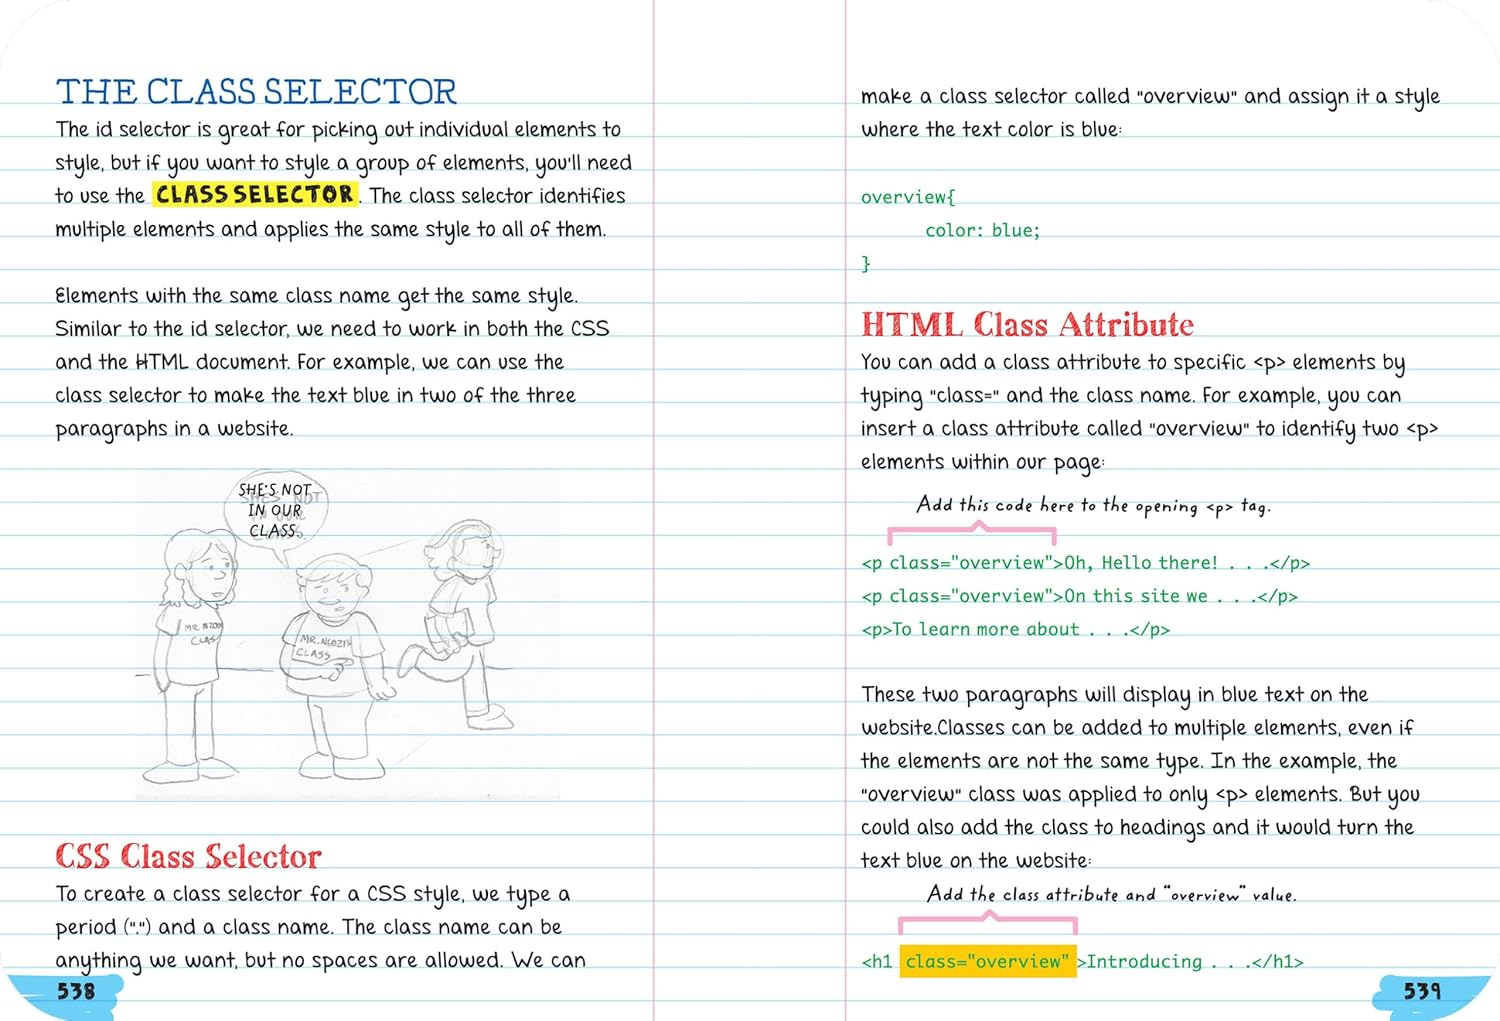 THE CLASS SELECTOR
The id selector is great for picking out individual elements to
style, but if you want to style a group of elements, you'll need
to use the CLASS SELECTOR. The class selector identifies
multiple elements and applies the same style to all of them.
Elements with the same class name get the same style.
Similar to the id selector, we need to work in both the CSS
and the HTML document. For example, we can use the
class selector to make the text blue in two of the three
paragraphs in a website.
SHE'S NOT
IN OUR
CLASS.
MR.
CLAS
MR. NGOZI'S
CLASS
CSS Class Selector
To create a class selector for a CSS style, we type a
period (".") and a class name. The class name can be
anything we want, but no spaces are allowed. We can
538
make a class selector called "overview" and assign it a style
where the text color is blue:
overview{
color: blue;
}
HTML Class Attribute
You can add a class attribute to specific <p> elements by
typing "class=" and the class name. For example, you can
insert a class attribute called "overview" to identify two <p>
elements within our page:
Add this code here to the opening <p> tag.
<p class="overview">Oh, Hello there! . . .</p>
<p class="overview">On this site we . . .</p>
<p>To learn more about . . .</p>
These two paragraphs will display in blue text on the
website.Classes can be added to multiple elements, even if
the elements are not the same type. In the example, the
"overview" class was applied to only <p> elements. But you
could also add the class to headings and it would turn the
text blue on the website:
Add the class attribute and “overview” value.
<h1 class="overview" >Introducing . . .</h1>
539